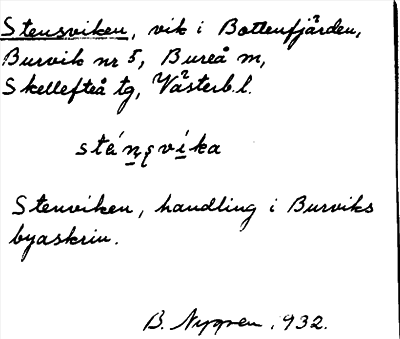 Stensviken, vik i Bottenfjärden,
Burvik nr 5, Bureå sn,
Skellefteå tg, Västerb.l.
sténsvíka
Stenviken, handling i Burviks
byaskrin.
B. Nygren 1932.